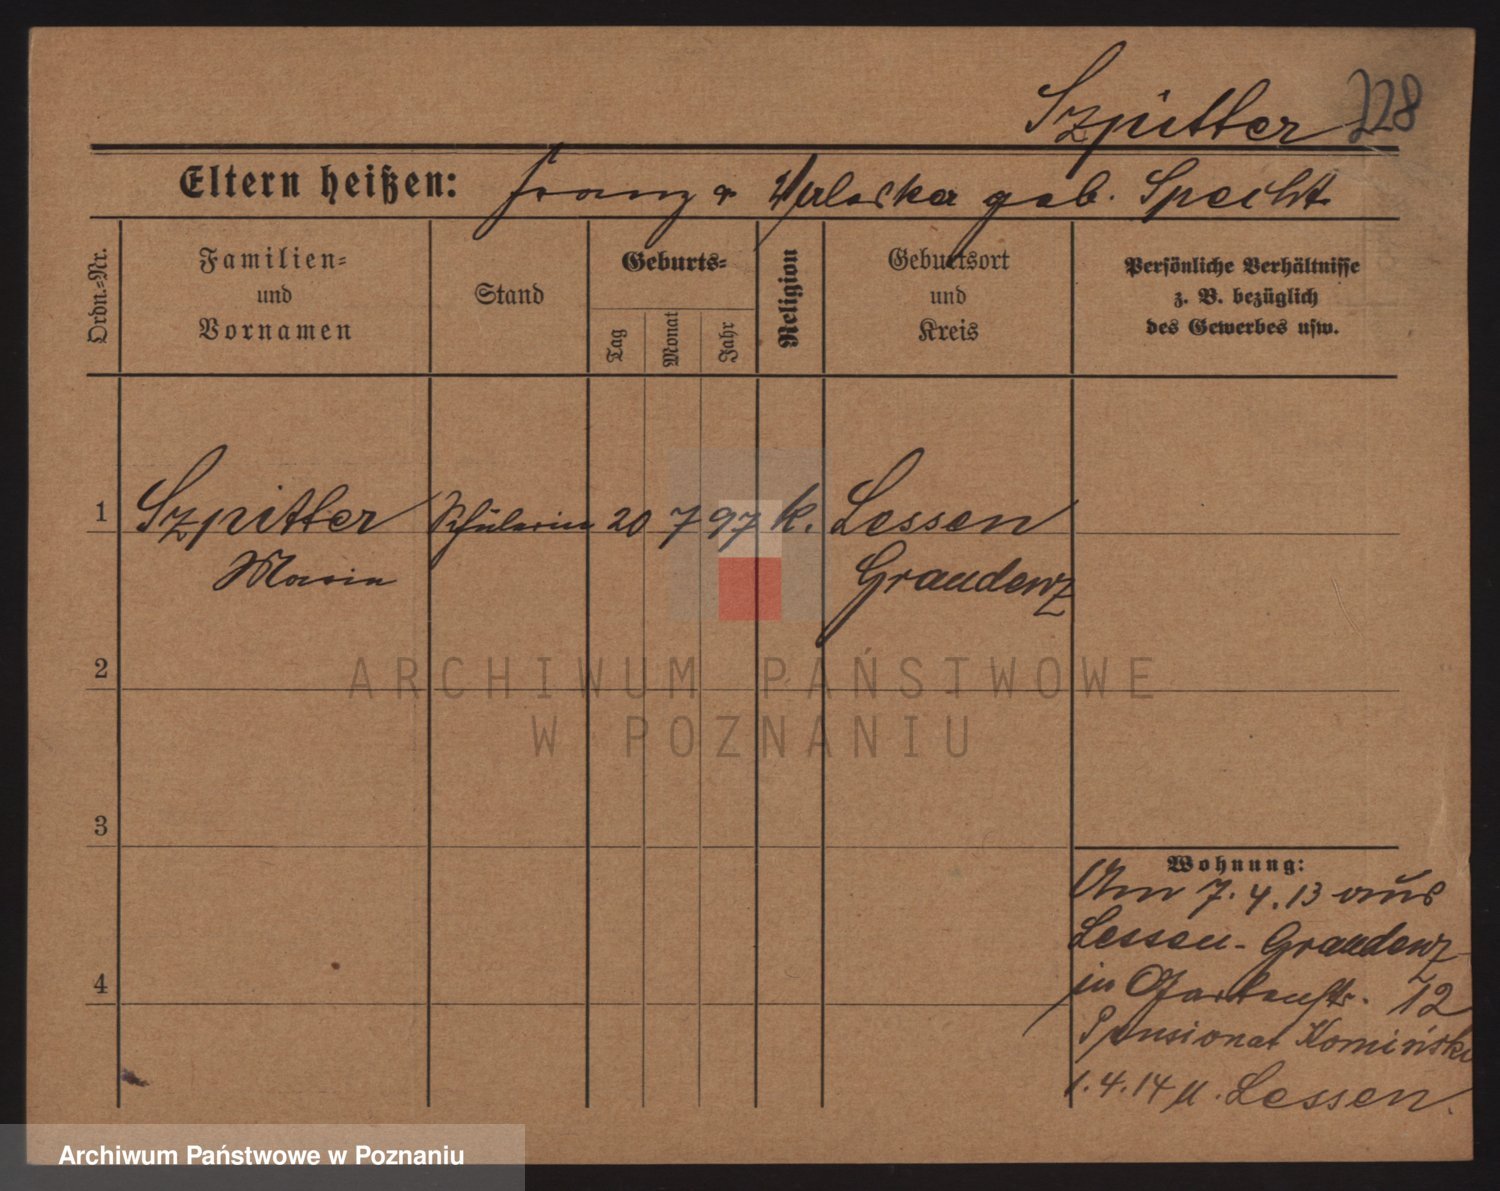 Szpitter 228
Eltern heißen: Franz u geb. Specht
Ordn.-Nr.
Familien-
und
Vornamen
Stand
Geburts-
Tag
Monat
Jahr
Religion
Geburtsort
und
Kreis
Persönliche Verhältnisse
z. B. bezüglich
des Gewerbes usw.
1 Szpitter Schülerin 20 7 97 k. Lessen
Maria Graudenz
2
3
4
Wohnung:
Am 7.4.13 aus
Lessen-Graudenz
in Gartenstr. 12
Pensionat Komiński
1.4.14 n. Lessen.
ARCHIWUM PAŃSTWOWE
W POZNANIU
Archiwum Państwowe w Poznaniu